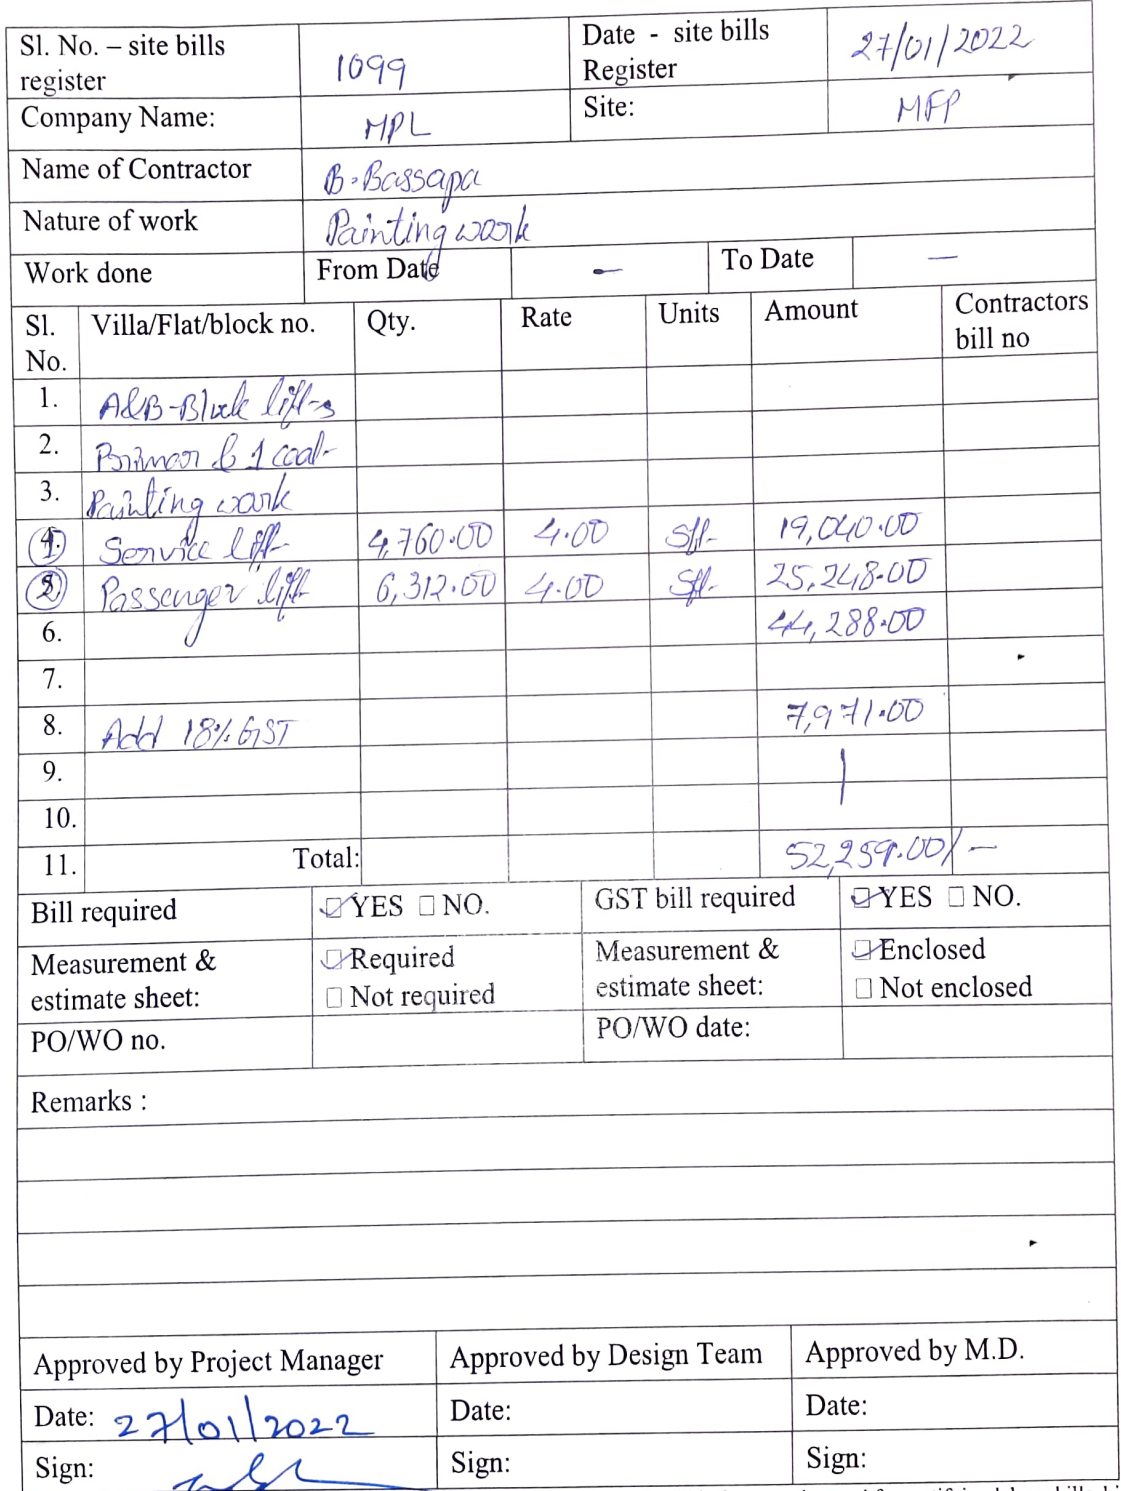 Sl. No. – site bills register 1099 Date - site bills Register 27/01/2022
Company Name: MPL Site: MFP
Name of Contractor B. Bassapa
Nature of work Painting work
Work done From Date — To Date —
Sl. No. Villa/Flat/block no. Qty. Rate Units Amount Contractors bill no
1. A&B-Block lift-s
2. Primar & 1 coat
3. Painting work
4. 1 Service lift 4,760.00 4.00 Sft. 19,040.00
5. 2 Passenger lift 6,312.00 4.00 Sft. 25,248.00
6. 44,288.00
7.
8. Add 18% GST 7,971.00
9.
10.
11. Total: 52,259.00/-
Bill required ☑ YES ☐ NO. GST bill required ☑ YES ☐ NO.
Measurement & estimate sheet: ☑ Required ☐ Not required Measurement & estimate sheet: ☑ Enclosed ☐ Not enclosed
PO/WO no. PO/WO date:
Remarks :
Approved by Project Manager Approved by Design Team Approved by M.D.
Date: 27/01/2022 Date: Date:
Sign: Sign: Sign: